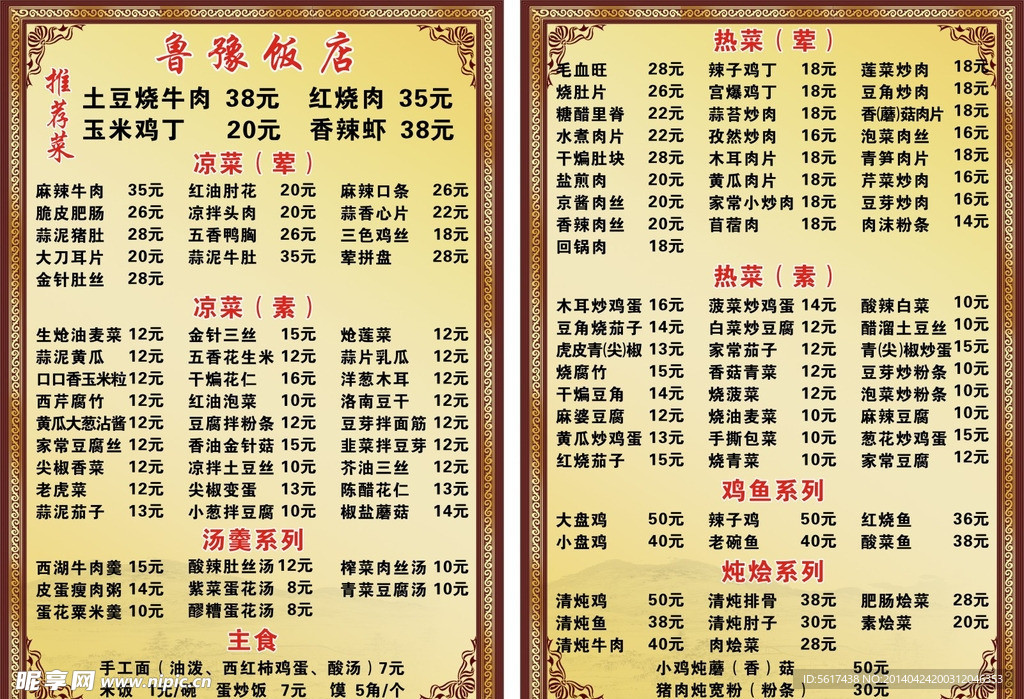 鲁豫饭店
推荐菜
土豆烧牛肉 38元 红烧肉 35元
玉米鸡丁 20元 香辣虾 38元
凉菜（荤）
麻辣牛肉 35元 红油肘花 20元 麻辣口条 26元
脆皮肥肠 26元 凉拌头肉 20元 蒜香心片 22元
蒜泥猪肚 28元 五香鸭胸 26元 三色鸡丝 18元
大刀耳片 20元 蒜泥牛肚 35元 荤拼盘 28元
金针肚丝 28元
凉菜（素）
生炝油麦菜 12元 金针三丝 15元 炝莲菜 12元
蒜泥黄瓜 12元 五香花生米 12元 蒜片乳瓜 12元
口口香玉米粒 12元 干煸花仁 16元 洋葱木耳 12元
西芹腐竹 12元 红油泡菜 10元 洛南豆干 12元
黄瓜大葱沾酱 12元 豆腐拌粉条 12元 豆芽拌面筋 12元
家常豆腐丝 12元 香油金针菇 15元 韭菜拌豆芽 12元
尖椒香菜 12元 凉拌土豆丝 10元 芥油三丝 12元
老虎菜 12元 尖椒变蛋 13元 陈醋花仁 13元
蒜泥茄子 13元 小葱拌豆腐 10元 椒盐蘑菇 14元
汤羹系列
西湖牛肉羹 15元 酸辣肚丝汤 12元 榨菜肉丝汤 10元
皮蛋瘦肉粥 14元 紫菜蛋花汤 8元 青菜豆腐汤 10元
蛋花粟米羹 10元 醪糟蛋花汤 8元
主食
手工面（油泼、西红柿鸡蛋、酸汤）7元
米饭 1元/碗 蛋炒饭 7元 馍 5角/个
热菜（荤）
毛血旺 28元 辣子鸡丁 18元 莲菜炒肉 18元
烧肚片 26元 宫爆鸡丁 18元 豆角炒肉 18元
糖醋里脊 22元 蒜苔炒肉 18元 香(蘑)菇肉片 18元
水煮肉片 22元 孜然炒肉 16元 泡菜肉丝 16元
干煸肚块 28元 木耳肉片 18元 青笋肉片 18元
盐煎肉 20元 黄瓜肉片 18元 芹菜炒肉 16元
京酱肉丝 20元 家常小炒肉 18元 豆芽炒肉 16元
香辣肉丝 20元 苜蓿肉 18元 肉沫粉条 14元
回锅肉 18元
热菜（素）
木耳炒鸡蛋 16元 菠菜炒鸡蛋 14元 酸辣白菜 10元
豆角烧茄子 14元 白菜炒豆腐 12元 醋溜土豆丝 10元
虎皮青(尖)椒 13元 家常茄子 12元 青(尖)椒炒蛋 15元
烧腐竹 15元 香菇青菜 12元 豆芽炒粉条 10元
干煸豆角 14元 烧菠菜 12元 泡菜炒粉条 10元
麻婆豆腐 12元 烧油麦菜 10元 麻辣豆腐 10元
黄瓜炒鸡蛋 13元 手撕包菜 10元 葱花炒鸡蛋 15元
红烧茄子 15元 烧青菜 10元 家常豆腐 12元
鸡鱼系列
大盘鸡 50元 辣子鸡 50元 红烧鱼 36元
小盘鸡 40元 老碗鱼 40元 酸菜鱼 38元
炖烩系列
清炖鸡 50元 清炖排骨 38元 肥肠烩菜 28元
清炖鱼 38元 清炖肘子 30元 素烩菜 20元
清炖牛肉 40元 肉烩菜 28元
小鸡炖蘑（香）菇 50元
猪肉炖宽粉（粉条） 30元
昵享网 www.nipic.cn
ID:5617438 NO:20140424200312046353